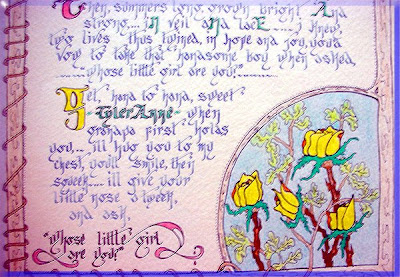 Then, summers long, grown bright And
strong,... in veil and lace..... i knew,
two lives thus twined, in hope and joy, you'd
vow to take that handsome boy when asked,
......whose little girl are you?"......
Yet, hand to hand, sweet
-TylerAnne- when
grandpa first holds
you,... i'll hug you to my
chest, you'll smile, then
squeek.... ill give your
little nose a tweek,
and ask,
"whose little girl
are you?"